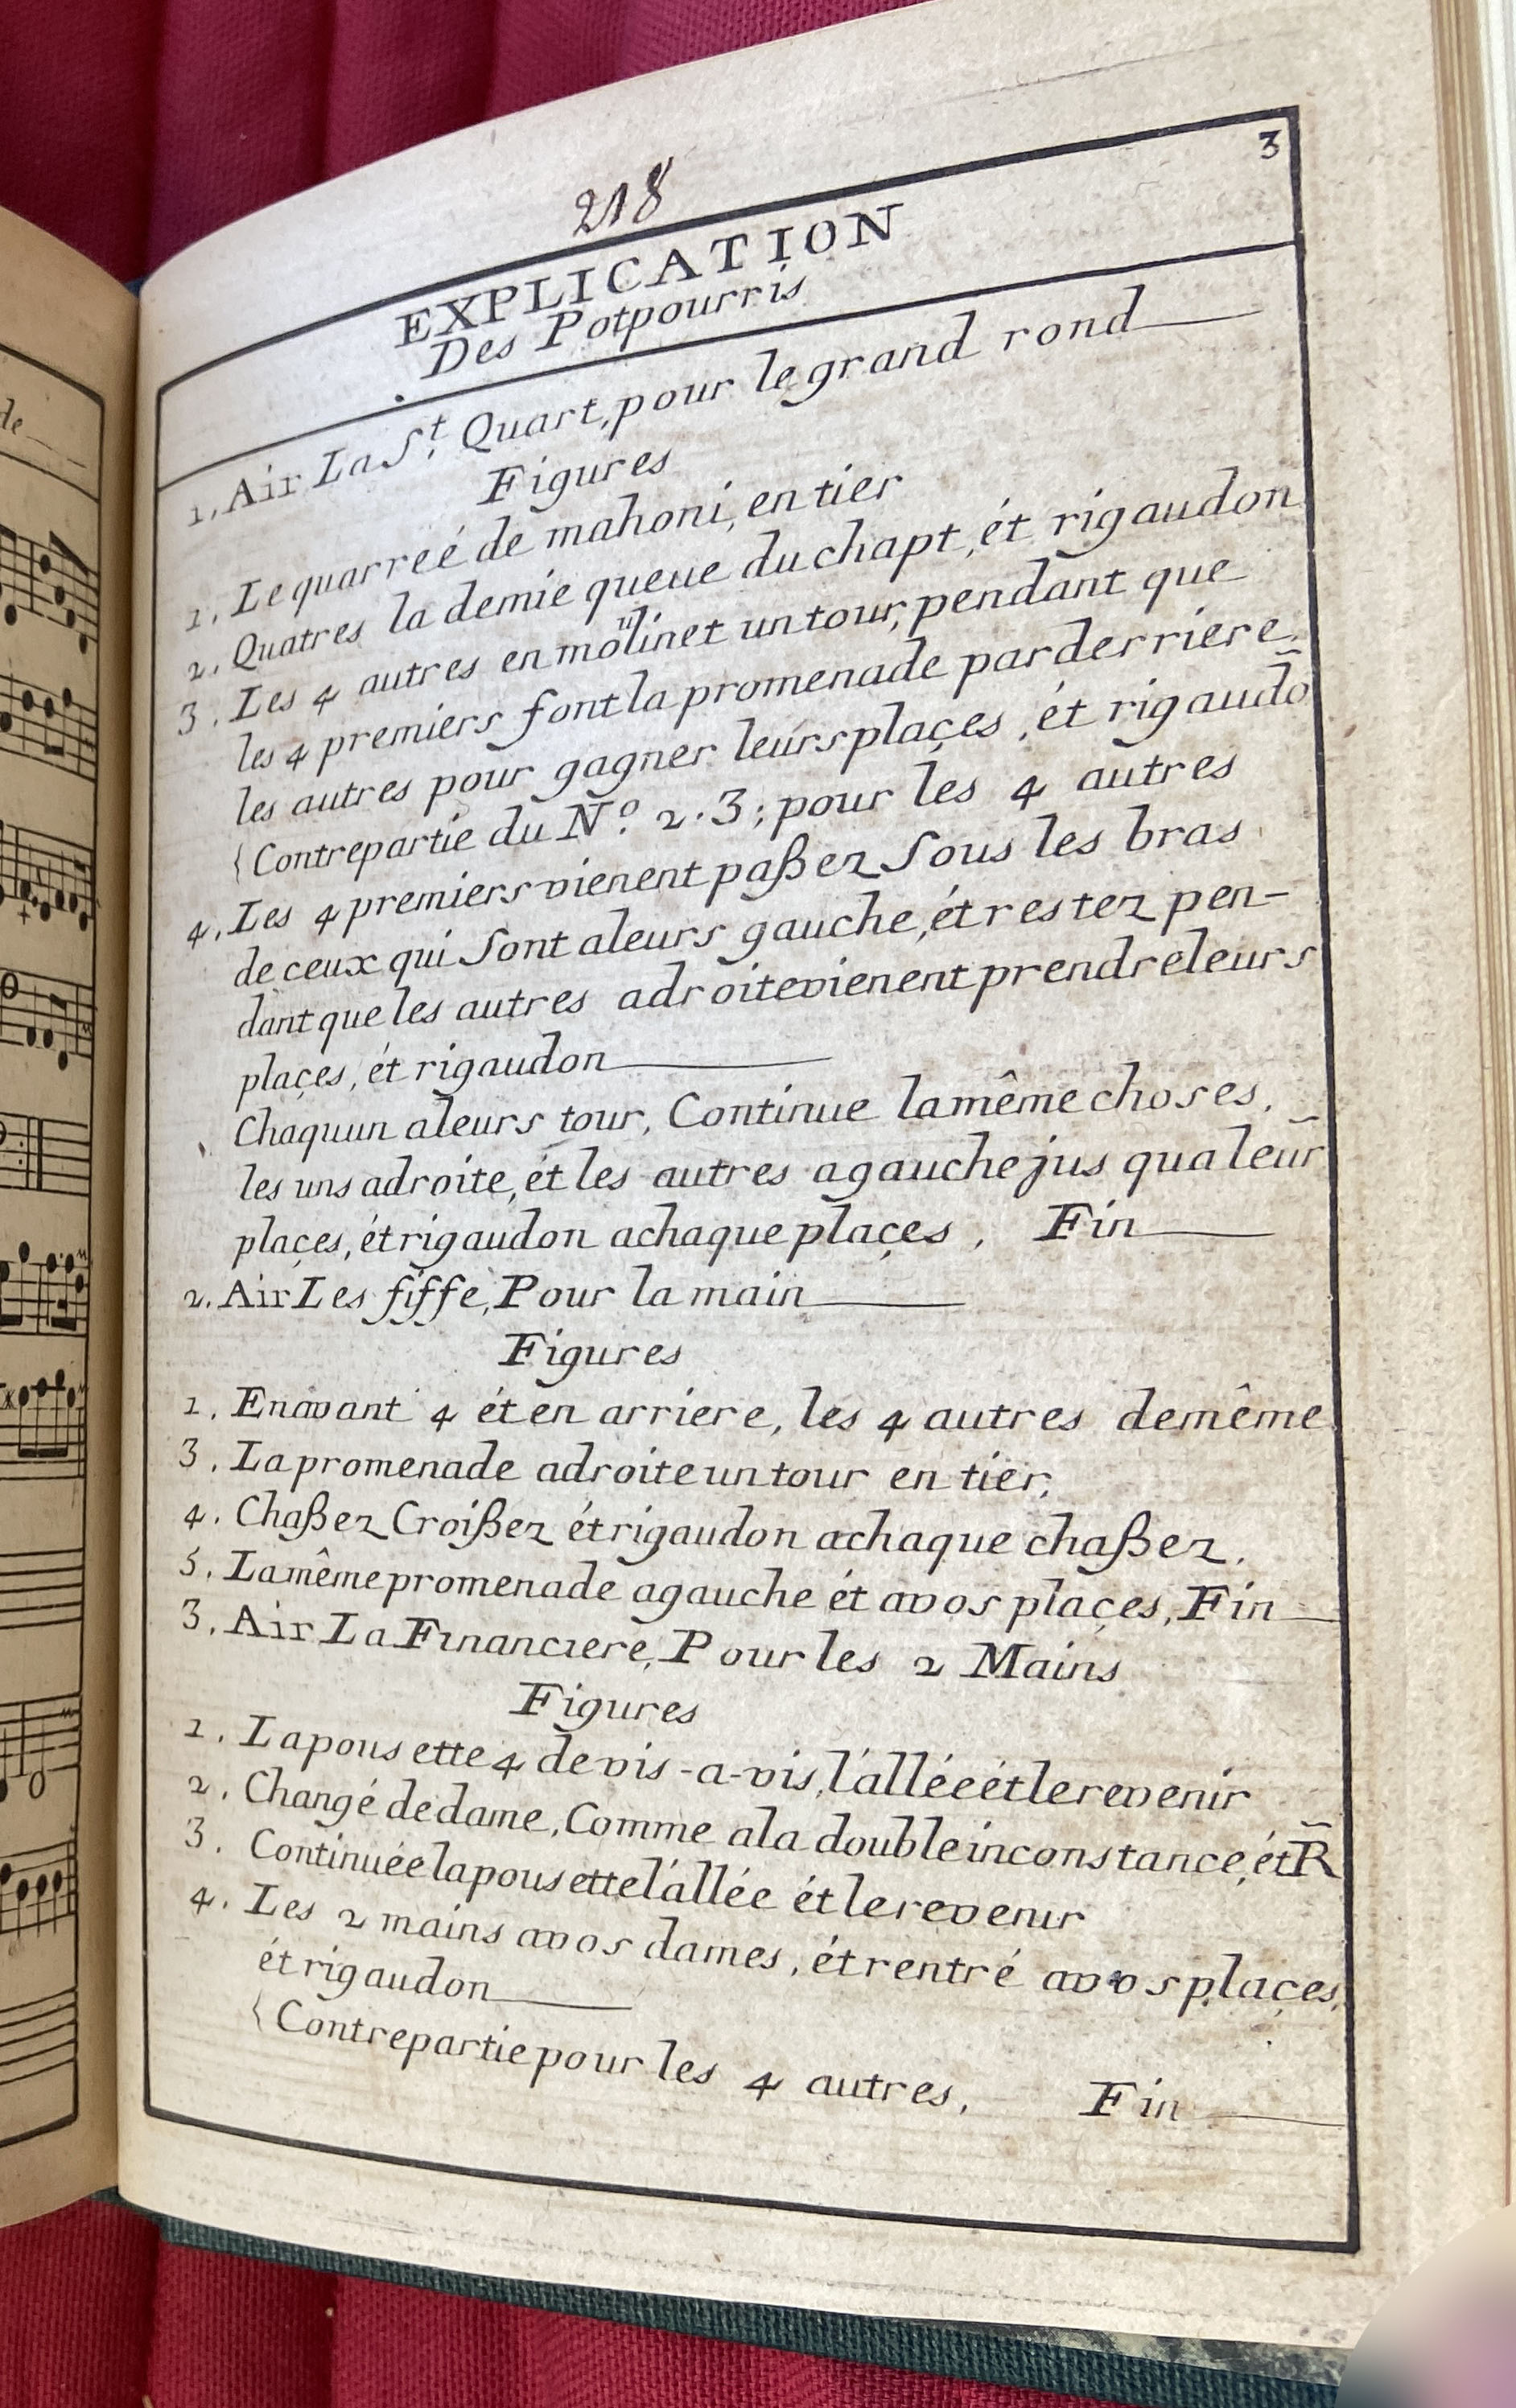 de
218
3
EXPLICATION
Des Potpourris
1. Air La St. Quart, pour le grand rond
Figures
1. Le quarreé de mahoni, en tier
2. Quatres la demie queue du chapt, ét rigaudon
3. Les 4 autres en moulinet un tour, pendant que
les 4 premiers font la promenade par derriere
les autres pour gagner leurs plaçes, ét rigaudō
{Contrepartie du No. 2.3; pour les 4 autres
4. Les 4 premiers vienent paßer Sous les bras
de ceux qui Sont a leurs gauche, ét restez pen-
dant que les autres a droite vienent prendre leurs
plaçes, ét rigaudon
Chaquun a leurs tour, Continue la même choses.
les uns a droite, ét les autres a gauche jus qua leur̄
plaçes, ét rigaudon a chaque plaçes. Fin
2. Air Les fiffe, Pour la main
Figures
1. En avant 4 ét en arriere, les 4 autres de même
3. La promenade a droite un tour en tier.
4. Chaßez Croißez ét rigaudon a chaque chaßez.
5. La même promenade a gauche ét a vos plaçes, Fin
3. Air La Financiere, Pour les 2 Mains
Figures
1. La pousette 4 de vis-a-vis, l'allée ét le revenir
2. Changé de dame, Comme a la double inconstance, ét R̄
3. Continuée la pousette l'allée ét le revenir
4. Les 2 mains a vos dames, ét rentré a vos plaçes,
ét rigaudon
{Contrepartie pour les 4 autres. Fin